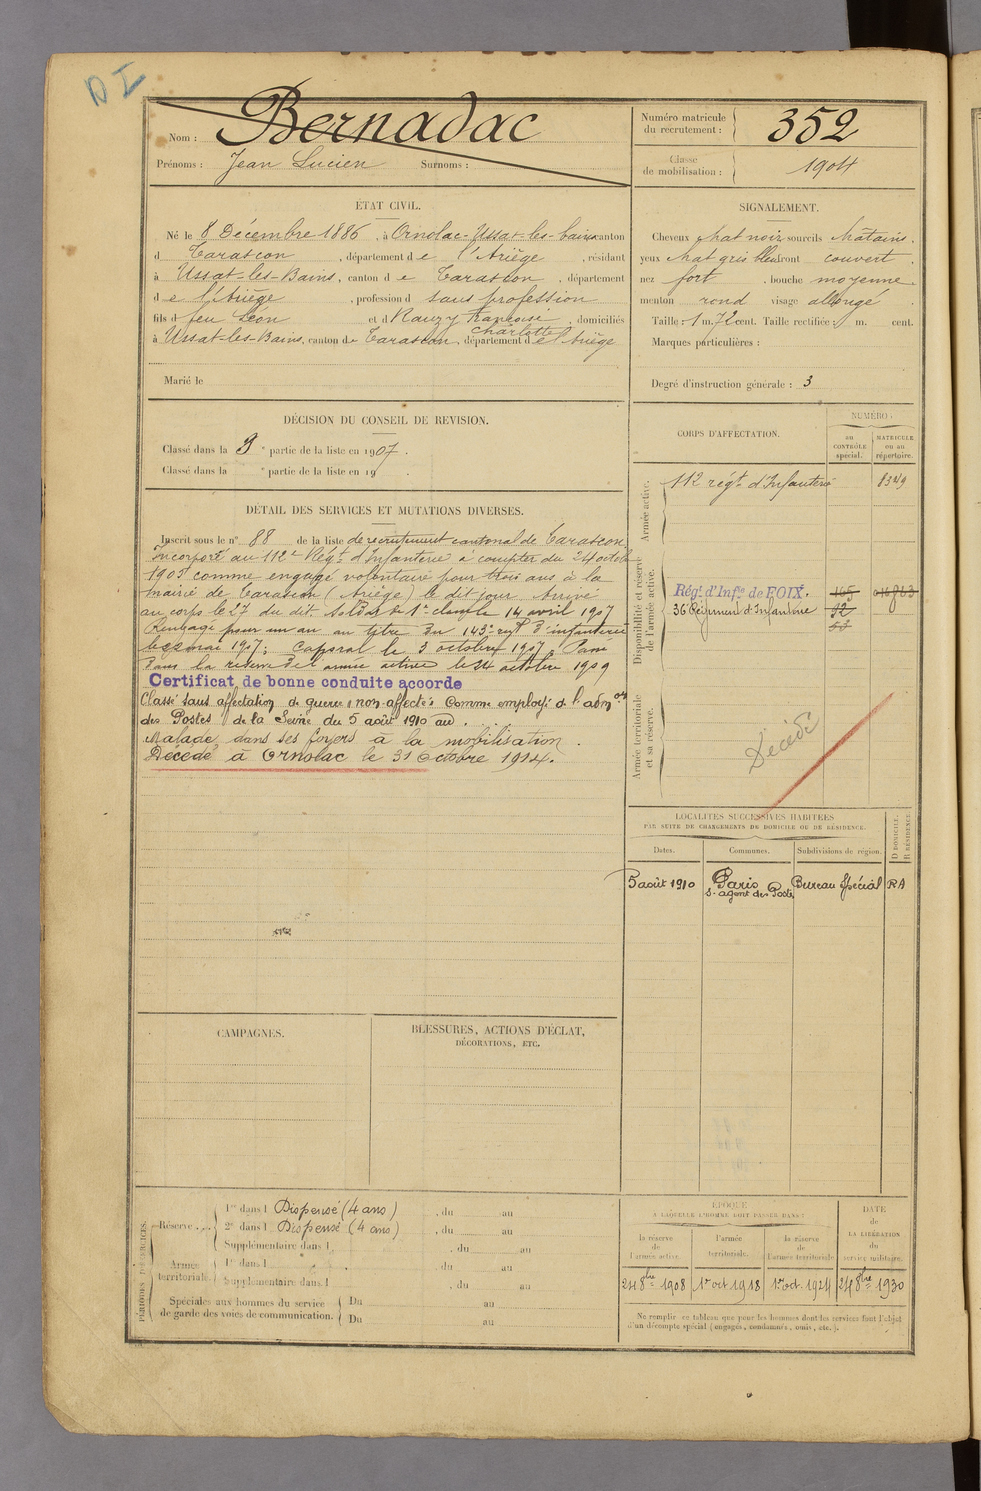 DI
Nom : Bernadac
Prénoms : Jean Lucien Surnoms :
Numéro matricule du recrutement : 352
Classe de mobilisation : 1904
ÉTAT CIVIL.
Né le 8 Décembre 1886, à Ornolac-Ussat-les-bains canton
d Tarascon, département de l'Ariège, résidant
à Ussat-les-Bains, canton de Tarascon, département
de l'Ariège, profession d sans profession
fils d feu Léon et d Nauzy françoise Charlotte, domiciliés
à Ussat-les-Bains, canton de Tarascon, département de l'Ariège
Marié le
SIGNALEMENT.
Cheveux chat noir sourcils châtains.
yeux chat gris bleu front couvert,
nez fort, bouche moyenne.
menton rond visage allongé.
Taille : 1 m. 72 cent. Taille rectifiée : m. cent.
Marques particulières :
Degré d'instruction générale : 3
DÉCISION DU CONSEIL DE REVISION.
Classé dans la 3e partie de la liste en 1907.
Classé dans la e partie de la liste en 19 .
CORPS D'AFFECTATION.
NUMÉRO :
au CONTRÔLE spécial.
MATRICULE ou au répertoire.
Armée active.
112 régt d'Infanterie 8349
Disponibilité et réserve de l'armée active.
Régt d'Infie de FOIX. 165
36 Régiment d'Infanterie 92
53
Armée territoriale et sa réserve.
Décédé
DÉTAIL DES SERVICES ET MUTATIONS DIVERSES.
Inscrit sous le n° 88 de la liste de recrutement cantonal de Tarascon
Incorporé au 112e Régt d'Infanterie à compter du 24 octobre
1905 comme engagé volontaire pour trois ans à la
mairie de Tarascon (Ariège) le dit jour. Arrivé
au corps le 27 du dit. Soldat de 1re classe le 14 avril 1907
Rengagé pour un an au titre du 143e régt d'infanterie
le 22 mai 1907; Caporal le 3 octobre 1907. Passé
dans la réserve de l'armée active le 24 octobre 1909
Certificat de bonne conduite accordé
Classé sans affectation de guerre "non affectés" comme employé de l'admon
des Postes de la Seine du 5 août 1910 au . . .
Malade dans ses foyers à la mobilisation.
Décédé à Ornolac le 31 octobre 1914.
LOCALITÉS SUCCESSIVES HABITÉES
PAR SUITE DE CHANGEMENTS DE DOMICILE OU DE RÉSIDENCE.
D DOMICILE. R RÉSIDENCE.
Dates. Communes. Subdivisions de région.
5 août 1910 Paris Bureau Spécial RA
s. agent des Postes
CAMPAGNES.
BLESSURES, ACTIONS D'ÉCLAT,
DÉCORATIONS, ETC.
PÉRIODES D'EXERCICES.
Réserve
1re dans l Dispensé (4 ans), du au
2e dans l Dispensé (4 ans), du au
Supplémentaire dans l , du au
Armée territoriale.
1re dans l , du au
Supplémentaire dans l , du au
Spéciales aux hommes du service de garde des voies de communication.
Du au
Du au
ÉPOQUE
À LAQUELLE L'HOMME DOIT PASSER DANS :
la réserve de l'armée active.
l'armée territoriale.
la réserve de l'armée territoriale
DATE de LA LIBÉRATION du service militaire.
24 8bre 1908 1er oct 1918 1er oct. 1924 24 8bre 1930
Ne remplir ce tableau que pour les hommes dont les services font l'objet
d'un décompte spécial (engagés, condamnés, omis, etc.).